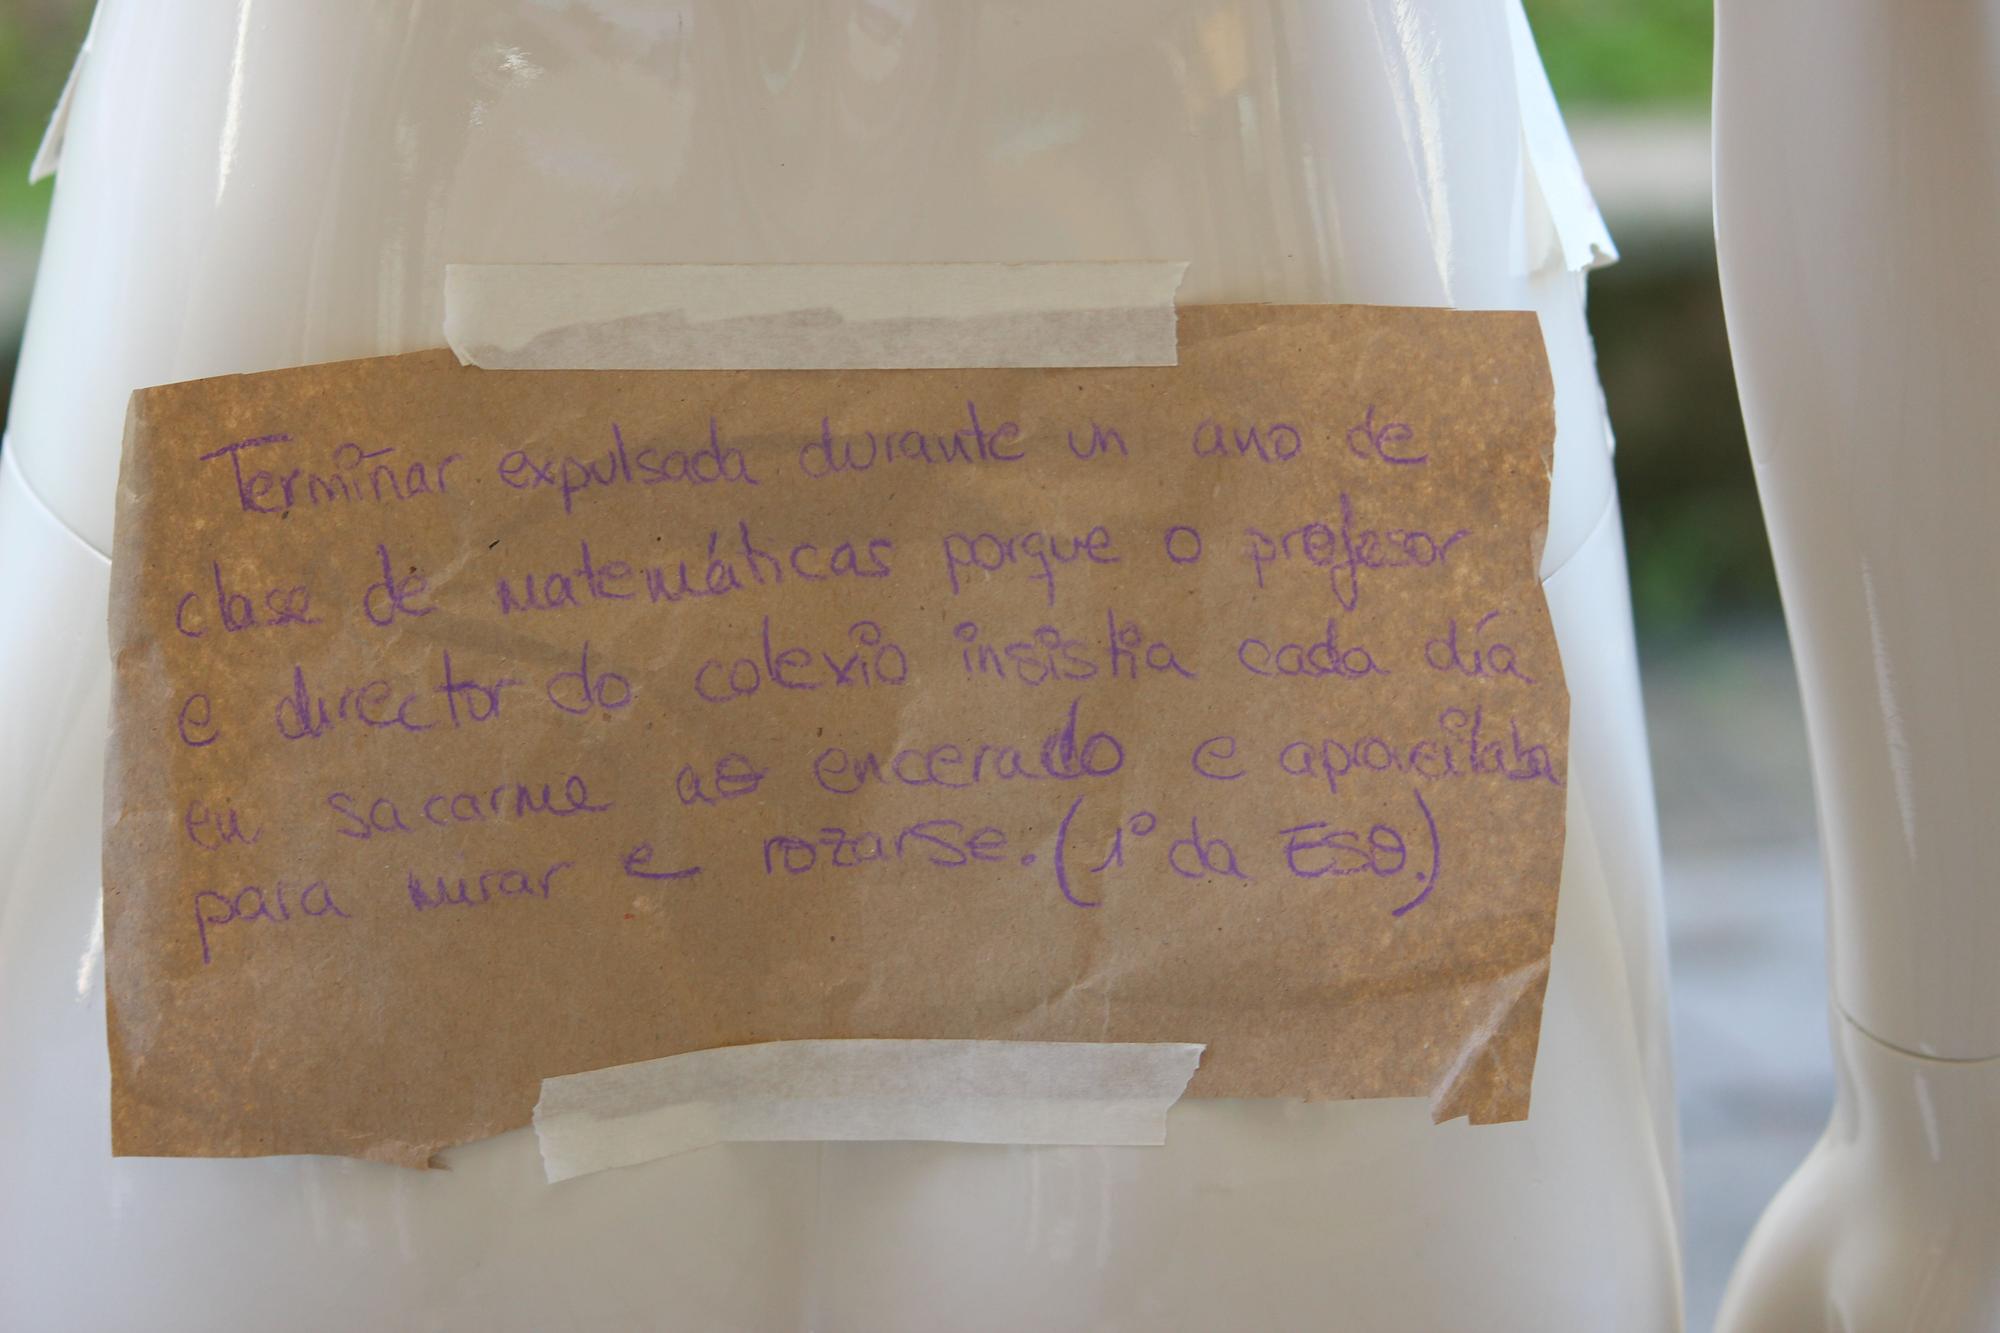 Termiñar expulsada durante un ano de
clase de matemáticas porque o profesor
e director do colexio insistia cada día
en sacarme ao encerado e aproveitaba
para mirar e rozarse. (1º da ESO.)